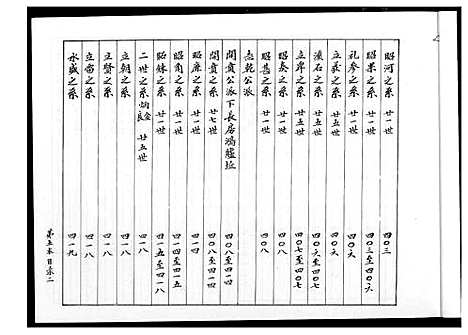 昭河之系 廿一世 四〇三
昭果之系 廿一世 四〇三至四〇六
礼参之系 廿五世 四〇六
立義之系 廿五世 四〇六
瓊石之系 廿五世 四〇六至四〇七
立岸之系 廿五世 四〇七至四〇七
昭奏之系 廿一世 四〇八
昭甚之系 廿一世 四〇八
志乾公派
開賓公派下長居鴻墟垃
開賓之系 廿七世 四〇八至四一四
昭廉之系 廿一世 四一四
昭角之系 廿一世 四一四至四一五
昭錬之系 廿一世 四一五至四一八
二世之系 廿五世 四一八
立朝之系 四一八
立賢之系 四一八
立富之系 四一八
永盛之系 四一九
第五本目录二